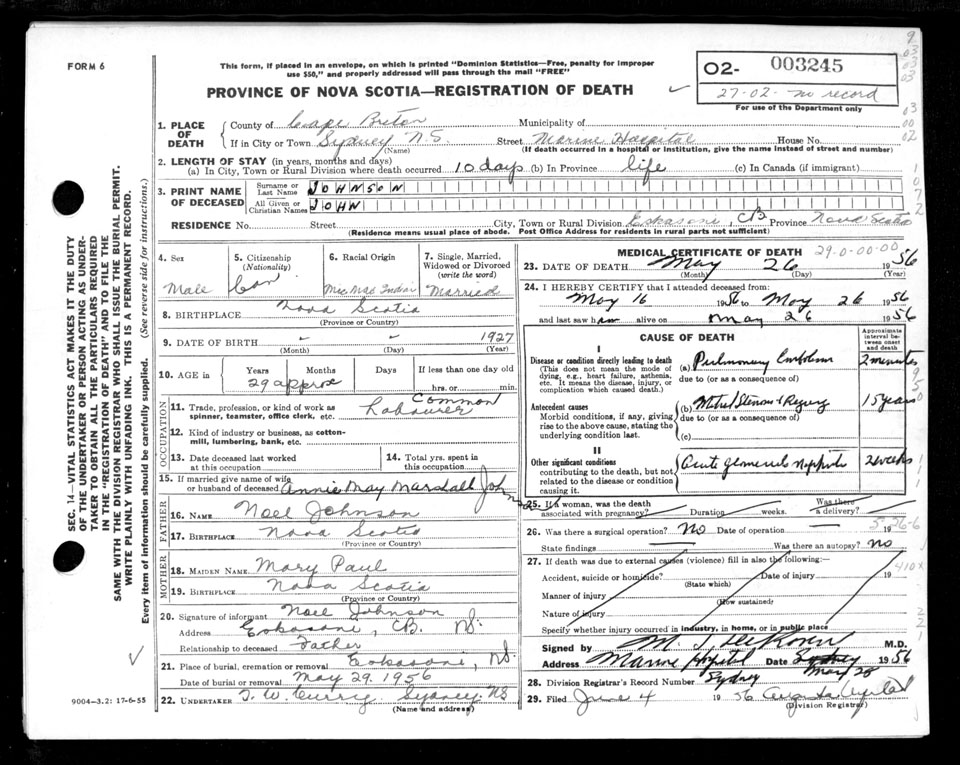 FORM 6
This form, if placed in an envelope, on which is printed "Dominion Statistics—Free, penalty for improper
use $50," and properly addressed will pass through the mail "FREE"
PROVINCE OF NOVA SCOTIA—REGISTRATION OF DEATH
O2- 003245
27-02- no record
For use of the Department only
1. PLACE OF DEATH
County of Cape Breton Municipality of
If in City or Town Sydney N.S. Street Marine Hospital House No.
(Name) (If death occurred in a hospital or institution, give the name instead of street and number)
2. LENGTH OF STAY (in years, months and days)
(a) In City, Town or Rural Division where death occurred 10 days (b) In Province life (c) In Canada (if immigrant)
3. PRINT NAME OF DECEASED
Surname or Last Name JOHNSON
All Given or Christian Names JOHN
RESIDENCE No. Street City, Town or Rural Division Eskasoni, CB Province Nova Scotia
(Residence means usual place of abode. Post Office Address for residents in rural parts not sufficient)
4. Sex Male
5. Citizenship (Nationality) Can
6. Racial Origin Mic Mac Indian
7. Single, Married, Widowed or Divorced (write the word) Married
8. BIRTHPLACE Nova Scotia
(Province or Country)
9. DATE OF BIRTH - - 1927
(Month) (Day) (Year)
10. AGE in Years Months Days If less than one day old
29 approx hrs. or min.
OCCUPATION
11. Trade, profession, or kind of work as spinner, teamster, office clerk, etc. Common Labourer
12. Kind of industry or business, as cotton-mill, lumbering, bank, etc.
13. Date deceased last worked at this occupation
14. Total yrs. spent in this occupation
15. If married give name of wife or husband of deceased Annie May Marshall Johnson
FATHER
16. NAME Noel Johnson
17. BIRTHPLACE Nova Scotia
(Province or Country)
MOTHER
18. MAIDEN NAME Mary Paul
19. BIRTHPLACE Nova Scotia
(Province or Country)
20. Signature of informant Noel Johnson
Address Eskasoni, CB. NS.
Relationship to deceased Father
21. Place of burial, cremation or removal Eskasoni, NS.
Date of burial or removal May 29, 1956
22. UNDERTAKER T. W. Curry, Sydney NS
(Name and address)
MEDICAL CERTIFICATE OF DEATH 29-0-00-00
23. DATE OF DEATH May 26 1956
(Month) (Day) (Year)
24. I HEREBY CERTIFY that I attended deceased from:
May 16 1956 to May 26 1956
and last saw him alive on May 26 1956
CAUSE OF DEATH
Approximate interval between onset and death
I
Disease or condition directly leading to death
(This does not mean the mode of dying, e.g., heart failure, asthenia, etc. It means the disease, injury, or complication which caused death.)
(a) Pulmonary Embolism 2 minutes
due to (or as a consequence of)
Antecedent causes
Morbid conditions, if any, giving rise to the above cause, stating the underlying condition last.
(b) Mitral Stenosis & Regurg 15 years
due to (or as a consequence of)
(c)
II
Other significant conditions
contributing to the death, but not related to the disease or condition causing it.
Acute glomerulo nephritis 2 weeks
25. If a woman, was the death associated with pregnancy? Duration weeks. Was there a delivery?
26. Was there a surgical operation? No Date of operation 19
State findings Was there an autopsy? No
27. If death was due to external causes (violence) fill in also the following:
Accident, suicide or homicide? Date of injury 19
(State which)
Manner of injury
(How sustained)
Nature of injury
Specify whether injury occurred in industry, in home, or in public place
Signed by M. M.D.
Address Marine Hospital Date Sydney May 28 1956
28. Division Registrar's Record Number Sydney
29. Filed June 4 1956
(Division Registrar)
SEC. 14—VITAL STATISTICS ACT MAKES IT THE DUTY
OF THE UNDERTAKER OR PERSON ACTING AS UNDER-
TAKER TO OBTAIN ALL THE PARTICULARS REQUIRED
IN THE "REGISTRATION OF DEATH" AND TO FILE THE
SAME WITH THE DIVISION REGISTRAR WHO SHALL ISSUE THE BURIAL PERMIT.
WRITE PLAINLY WITH UNFADING INK. THIS IS A PERMANENT RECORD.
Every item of information should be carefully supplied. (See reverse side for instructions.)
9004-3.2: 17-6-55